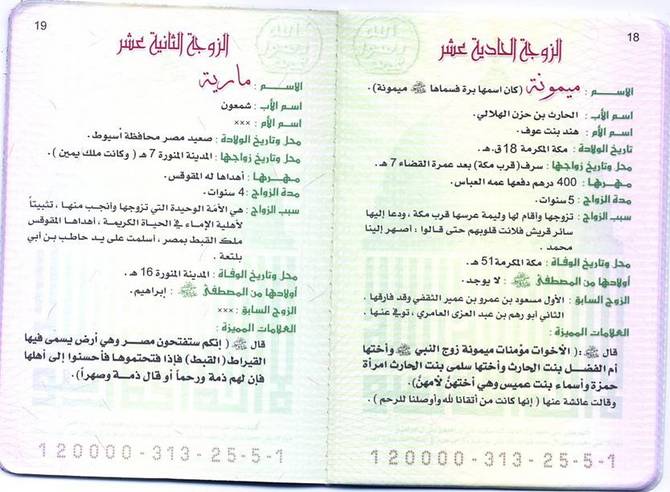 18
الزوجة الحادية عشر
الاســم : ميمونة (كان اسمها برة فسماها ﷺ ميمونة).
اسم الأب : الحارث بن حزن الهلالي.
اسم الأم : هند بنت عوف.
تاريخ الولادة : مكة المكرمة 18ق.هـ.
محل وتاريخ زواجها : سرف(قرب مكة) بعد عمرة القضاء 7 هـ.
مـهـرهـا : 400 درهم دفعها عمه العباس.
مدة الزواج : 5 سنوات.
سبب الزواج : تزوجها واقام لها وليمة عرسها قرب مكة ، ودعا إليها
سائر قريش فلانت قلوبهم حتى قالوا : أصهر إلينا
محمد .
محل وتاريخ الوفاة : مكة المكرمة51 هـ.
أولادها من المصطفى ﷺ : لا يوجد.
الزوج السابق : الأول مسعود بن عمرو بن عمير الثقفي وقد فارقها .
الثاني أبو رهم بن عبد العزى العامري ، توفي عنها .
العلامات المميزة :
قال ﷺ :( الأخوات مؤمنات ميمونة زوج النبي ﷺ وأختها
أم الفضل بنت الحارث وأختها سلمى بنت الحارث امرأة
حمزة وأسماء بنت عميس وهي أختهن لأمهن).
وقالت عائشة عنها ( إنها كانت من أتقانا لله وأوصلنا للرحم ) .
120000-313-25-5-1
19
الزوجة الثانية عشر
الاســم : مارية
اسم الأب : شمعون
اسم الأم : ×××
محل وتاريخ الولادة : صعيد مصر محافظة أسيوط .
محل وتاريخ زواجها : المدينة المنورة 7 هـ ( وكانت ملك يمين ).
مـهـرهـا : أهداها له المقوقس .
مدة الزواج : 4 سنوات.
سبب الزواج : هي الأمَة الوحيدة التي تزوجها وأنجب منها ، تثبيتاً
لأهلية الإماء في الحياة الكريمة ، أهداها المقوقس
ملك القبط بمصر ، أسلمت على يد حاطب بن أبي
بلتعة .
محل وتاريخ الوفاة : المدينة المنورة 16 هـ .
أولادها من المصطفى ﷺ : إبراهيم.
الزوج السابق : ×××
العلامات المميزة :
قال ﷺ : ( إنكم ستفتحون مصـر وهي أرض يسمى فيها
القيراط (القبط) فإذا فتحتموها فأحسنوا إلى أهلها
فإن لهم ذمة ورحماً أو قال ذمة وصهراً ).
120000-313-25-5-1